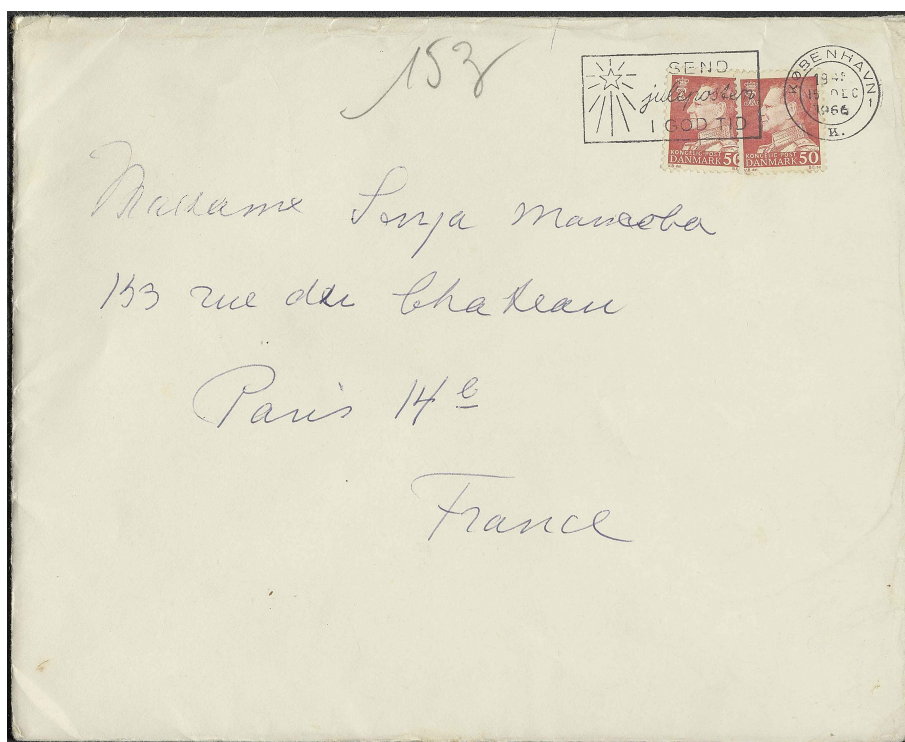 153
SEND
juleposten
I GOD TID
KØBENHAVN
15 DEC
1966
K.
KONGELIG POST
DANMARK 50
KONGELIG POST
DANMARK 50
Madame Sonja Mancoba
153 rue du Chateau
Paris 14e
France